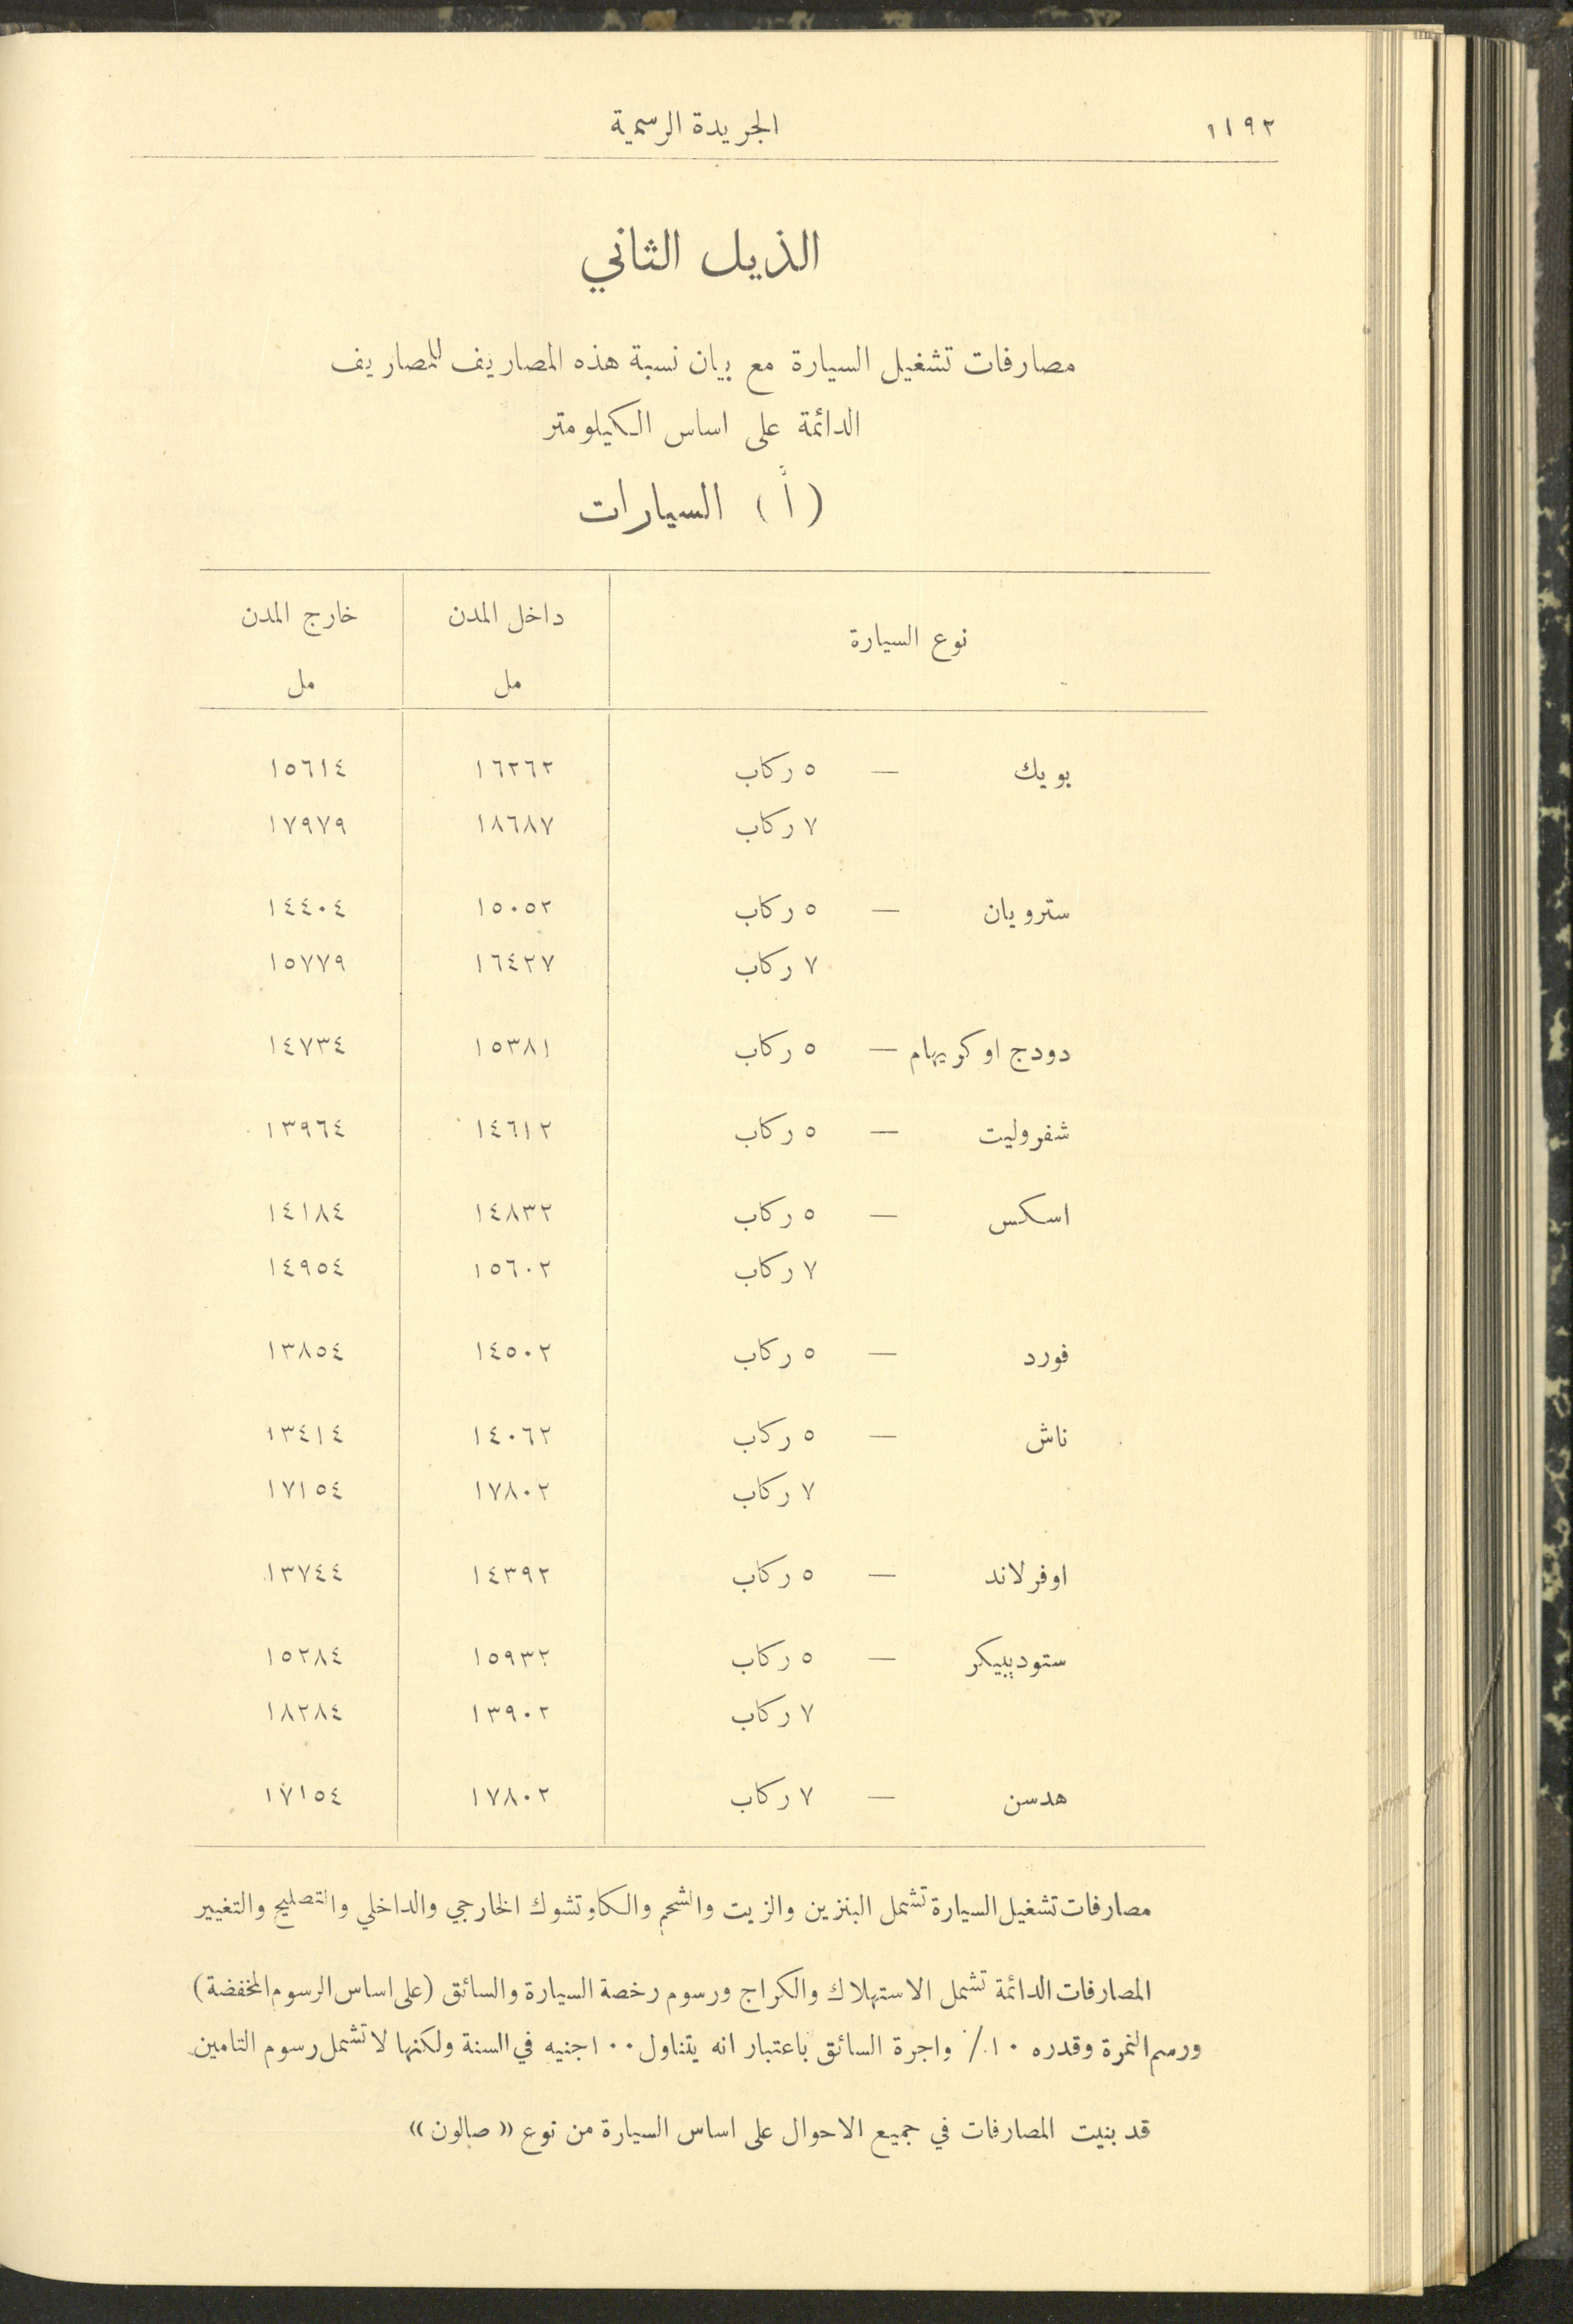 ١١٩٢ الجريدة الرسمية
الذيل الثاني
مصارفات تشغيل السيارة مع بيان نسبة هذه المصاريف للمصاريف
الدائمة على اساس الكيلومتر
(أ) السيارات
نوع السيارة داخل المدن خارج المدن
مل مل
بويك — ٥ ركاب ١٦٢٦٢ ١٥٦١٤
٧ ركاب ١٨٦٨٧ ١٧٩٧٩
سترويان — ٥ ركاب ١٥٠٥٢ ١٤٤٠٤
٧ ركاب ١٦٤٢٧ ١٥٧٧٩
دودج او كريهام — ٥ ركاب ١٥٣٨١ ١٤٧٣٤
شفروليت — ٥ ركاب ١٤٦١٢ ١٣٩٦٤
اسكس — ٥ ركاب ١٤٨٣٢ ١٤١٨٤
٧ ركاب ١٥٦٠٢ ١٤٩٥٤
فورد — ٥ ركاب ١٤٥٠٢ ١٣٨٥٤
ناش — ٥ ركاب ١٤٠٦٢ ١٣٤١٤
٧ ركاب ١٧٨٠٢ ١٧١٥٤
اوفرلاند — ٥ ركاب ١٤٣٩٢ ١٣٧٤٤
ستوديبيكر — ٥ ركاب ١٥٩٣٢ ١٥٢٨٤
٧ ركاب ١٣٩٠٢ ١٨٢٨٤
هدسن — ٧ ركاب ١٧٨٠٢ ١٧١٥٤
مصارفات تشغيل السيارة تشمل البنزين والزيت والشحم والكاوتشوك الخارجي والداخلي والتصليح والتغيير
المصارفات الدائمة تشمل الاستهلاك والكراج ورسوم رخصة السيارة والسائق (على اساس الرسوم المخفضة)
ورسم النمرة وقدره ١٠٪ واجرة السائق باعتبار انه يتناول ١٠٠ جنيه في السنة ولكنها لا تشمل رسوم التامين
قد بنيت المصارفات في جميع الاحوال على اساس السيارة من نوع «صالون»